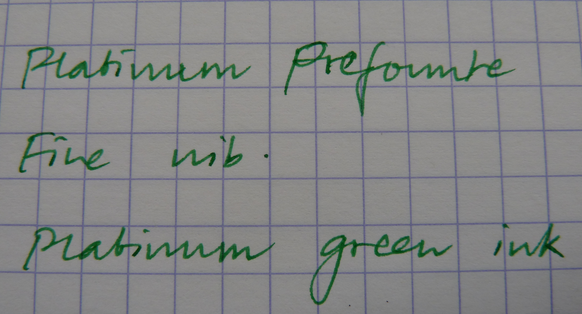 Platinum Prefounte
Fine nib.
Platinum green ink